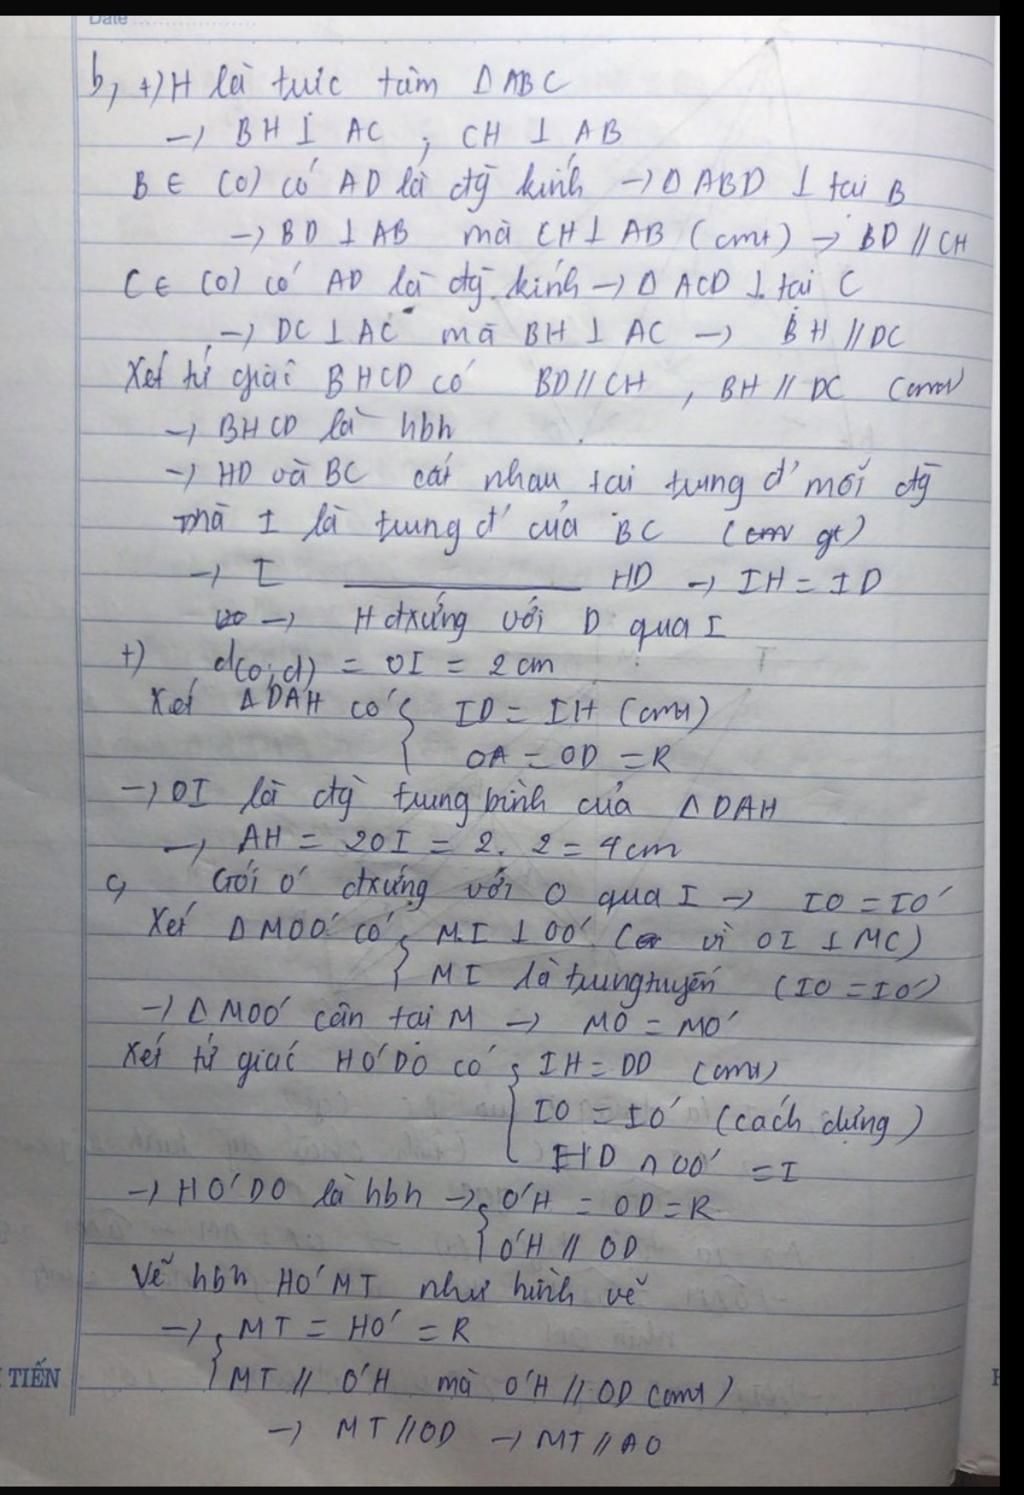 Date
b, +) H là trực tâm Δ ABC
→ BH ⊥ AC ; CH ⊥ AB
B ∈ (O) có AD là đg̃ kính → Δ ABD ⊥ tại B
→ BD ⊥ AB mà CH ⊥ AB (cmt) → BD // CH
C ∈ (O) có AD là đg̃ kính → Δ ACD ⊥ tại C
→ DC ⊥ AC mà BH ⊥ AC → BH // DC
Xét tứ giác BHCD có BD // CH , BH // DC (cmt)
→ BHCD là hbh
→ HD và BC cắt nhau tại trung đ' mỗi đg̃
mà I là trung đ' của BC (gt)
→ I ———————— HD → IH = ID
→ H đxứng với D qua I
+) d(O;d) = OI = 2 cm
Xét Δ DAH có { ID = IH (cmt)
OA = OD = R
→ OI là đg̃ trung bình của Δ DAH
→ AH = 2OI = 2. 2 = 4cm
c, Gọi O' đxứng với O qua I → IO = IO'
Xét Δ MOO' có { MI ⊥ OO' ( vì OI ⊥ MC)
MI là trung tuyến (IO = IO')
→ Δ MOO' cân tại M → MO = MO'
Xét tứ giác HO'DO có { IH = DD (cmt)
IO = IO' (cách dựng)
HD ∩ OO' = I
→ HO'DO là hbh → { O'H = OD = R
O'H // OD
Vẽ hbh HO'MT như hình vẽ
→ { MT = HO' = R
MT // O'H mà O'H // OD (cmt)
→ MT // OD → MT // AO
TIẾN